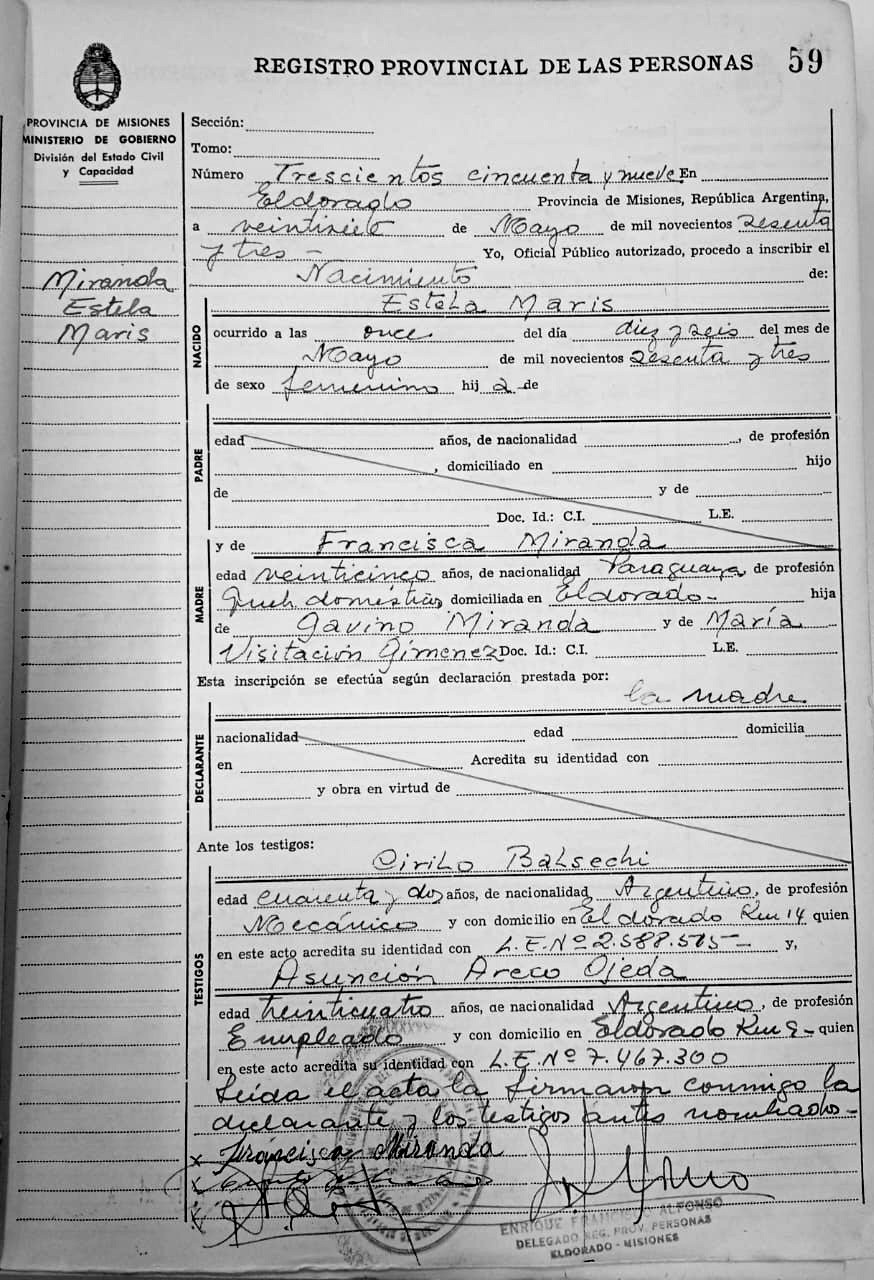 REGISTRO PROVINCIAL DE LAS PERSONAS 59
PROVINCIA DE MISIONES
MINISTERIO DE GOBIERNO
División del Estado Civil
y Capacidad
Miranda
Estela
Maris
Sección:
Tomo:
Número Trescientos cincuenta y nueve En
Eldorado Provincia de Misiones, República Argentina,
a veintisiete de Mayo de mil novecientos sesenta
y tres - Yo, Oficial Público autorizado, procedo a inscribir el
Nacimiento de:
NACIDO
Estela Maris
ocurrido a las once del día diez y seis del mes de
Mayo de mil novecientos sesenta y tres
de sexo femenino hij a de
PADRE
edad años, de nacionalidad , de profesión
, domiciliado en hijo
de y de
Doc. Id.: C.I. L.E.
MADRE
y de Francisca Miranda
edad veinticinco años, de nacionalidad Paraguaya, de profesión
Queh. domésticos domiciliada en Eldorado - hija
de Gavino Miranda y de María
Visitación Gimenez Doc. Id.: C.I. L.E.
Esta inscripción se efectúa según declaración prestada por:
la madre
DECLARANTE
nacionalidad edad domicilia
en Acredita su identidad con
y obra en virtud de
Ante los testigos:
TESTIGOS
Cirilo Balsechi
edad cuarenta y dos años, de nacionalidad Argentino, de profesión
Mecánico y con domicilio en Eldorado Km 14 quien
en este acto acredita su identidad con L.E. Nº 2.588.515 - y,
Asunción Areco Ojeda
edad treinticuatro años, de nacionalidad Argentino, de profesión
Empleado y con domicilio en Eldorado Km 9 - quien
en este acto acredita su identidad con L.E. Nº 7.467.300
Leída el acta la firmaron conmigo la
declarante y los testigos antes nombrados -
x Francisca Miranda
x
x
ENRIQUE FRANCISCO ALFONSO
DELEGADO REG. PROV. PERSONAS
ELDORADO - MISIONES